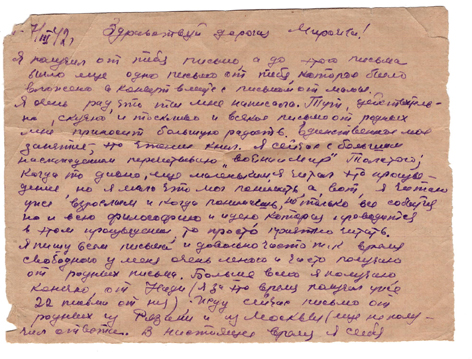 7/III 42 г. Здравствуй дорогая Мирочка!
Я получил от тебя письмо, а до этого письма
было еще одно письмо от тебя, которое было
вложено в конверт вместе с письмом от мамы.
Я очень рад что ты мне написала. Тут, действитель-
но, скучно и тоскливо и всякое письмо от родных
мне приносит большую радость. Единственное мое
занятие, это чтение книг. Я сейчас с большим
наслаждением перечитываю "Война и мир" Толстого.
Когда то давно, еще маленьким я читал это произве-
дение но я мало что мог понимать, а вот я читаю
уже взрослым и когда понимаешь, не только все события
но и всю философию и идею которая проводится
в этом произведении то просто приятно читать.
Я пишу всем письма и довольно часто т.к. время
свободного у меня очень много и часто получаю
от родных письма. Больше всего я получаю
конечно, от Нади (я за это время получил уже
22 письма от неё). Пишу сейчас письмо от
родных из Рязани и из Москвы (еще не полу-
чил ответа). В настоящее время я себя